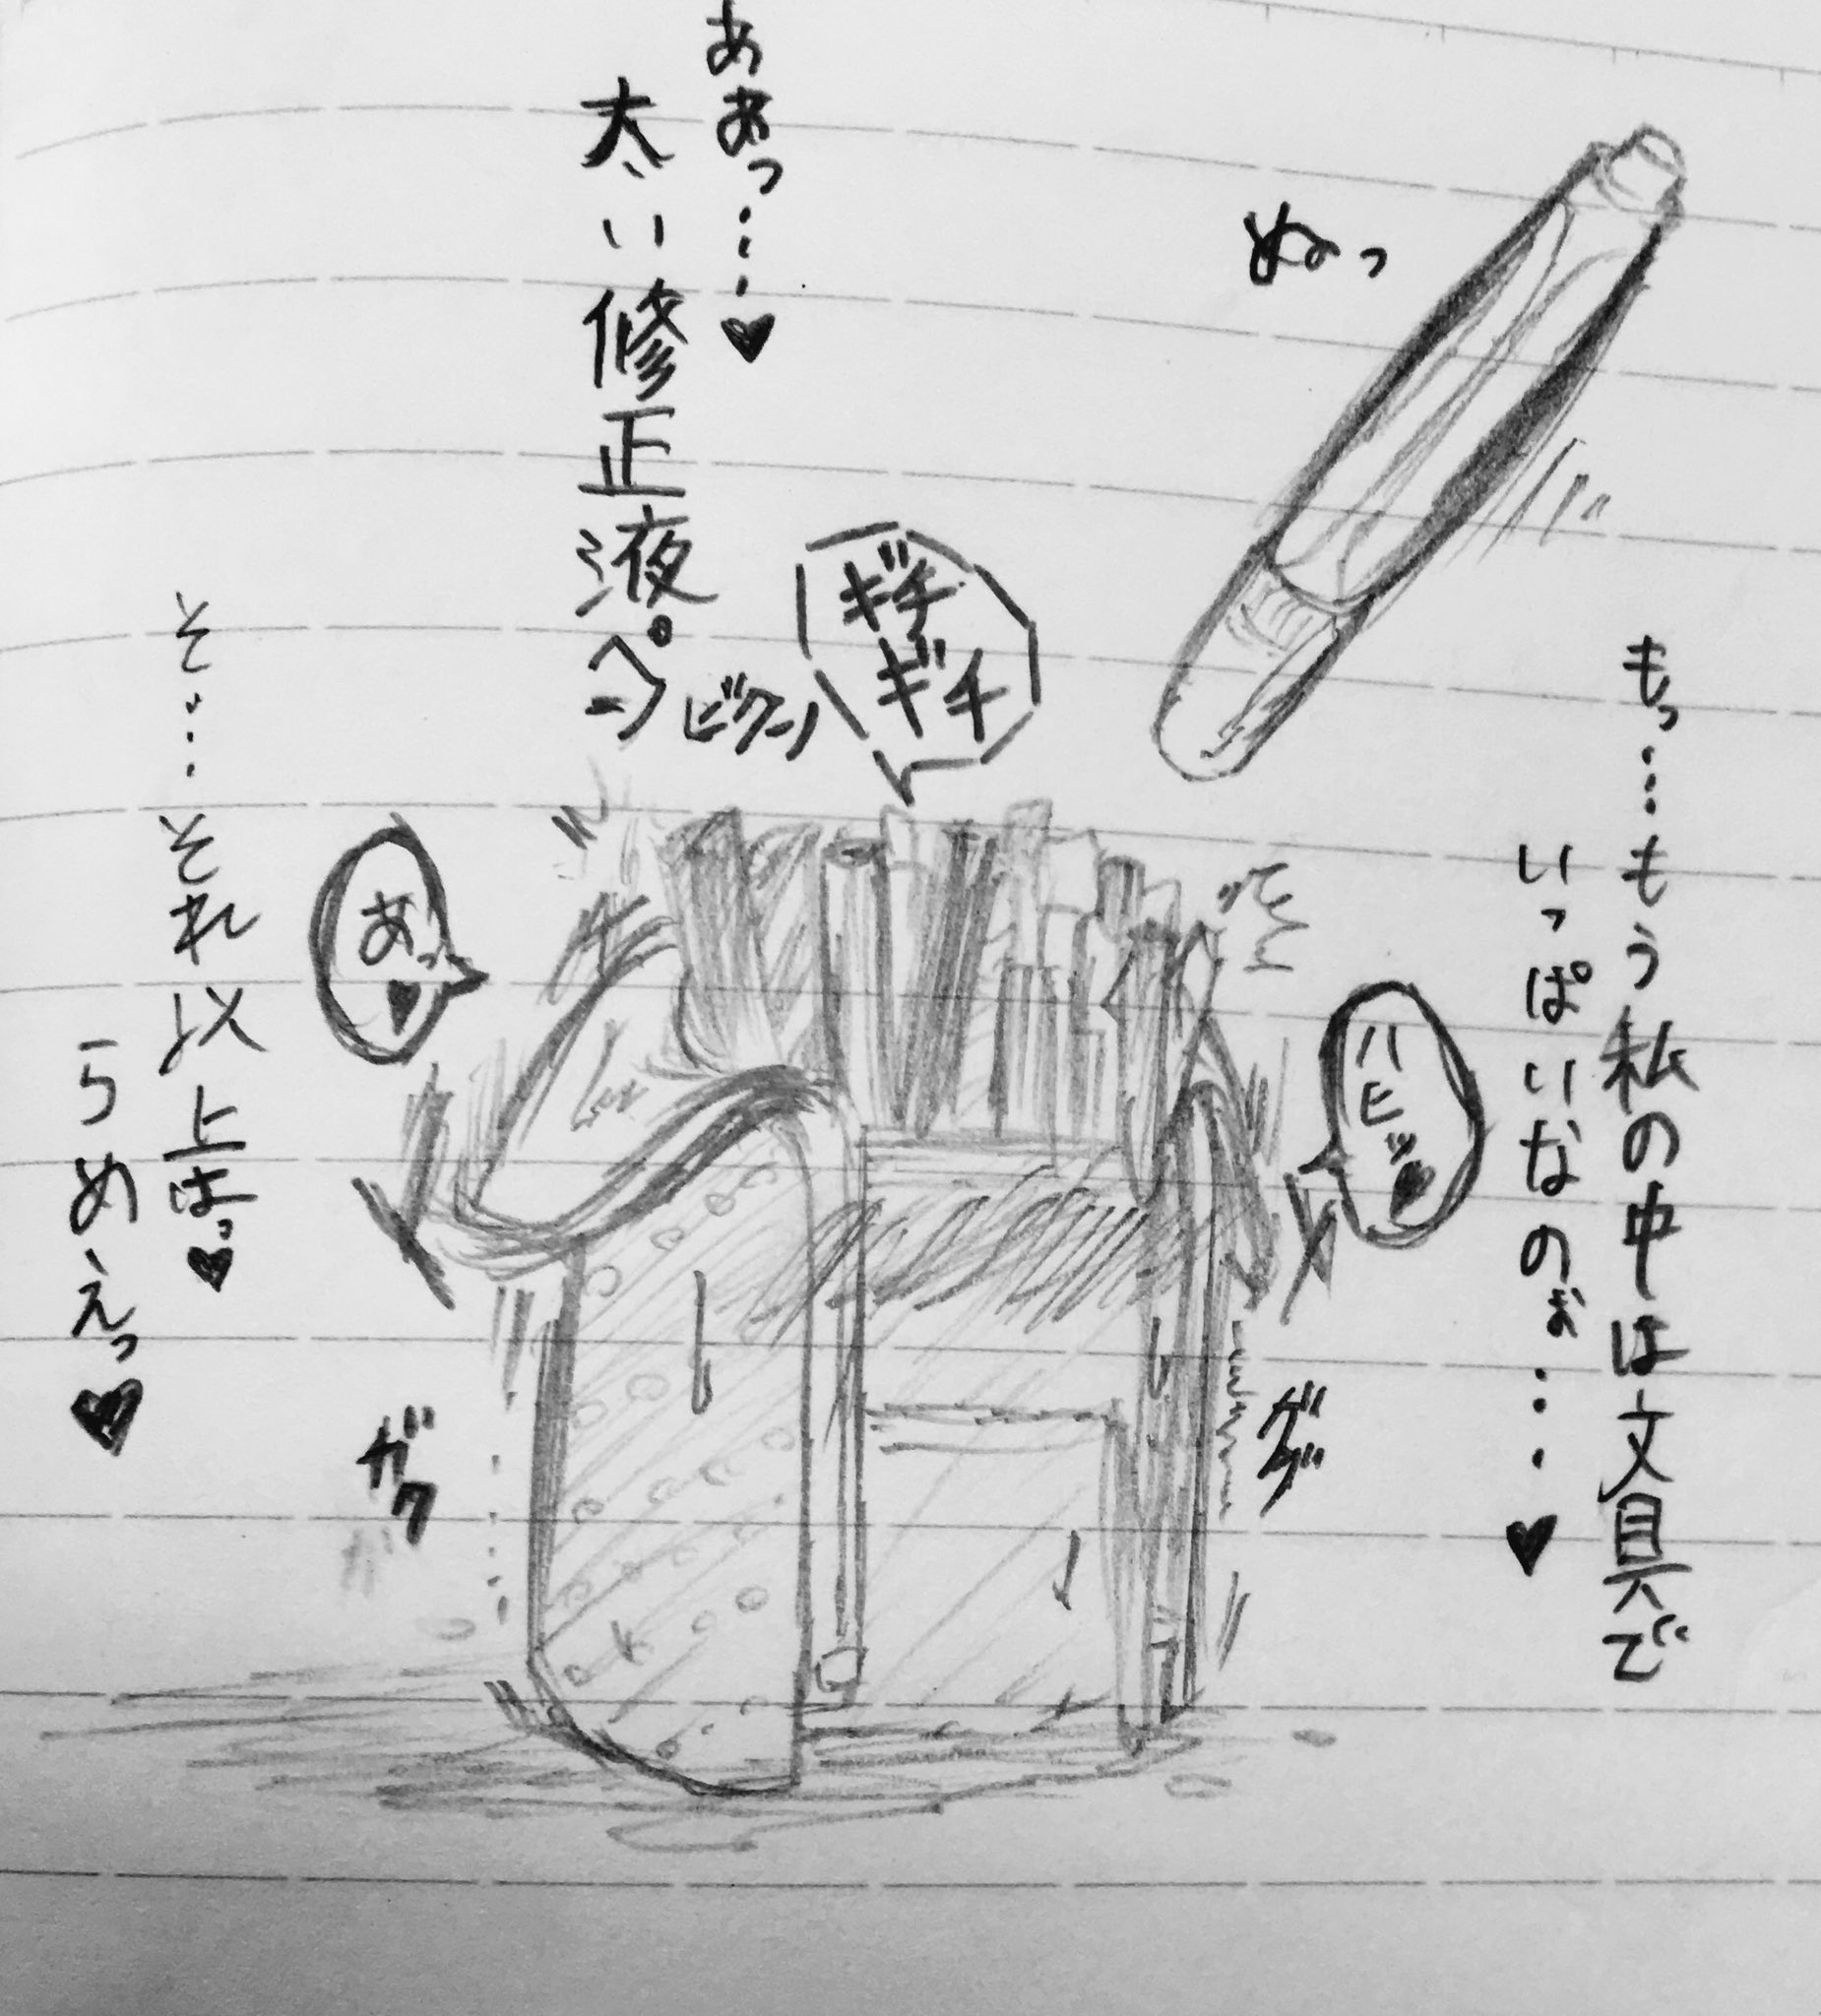 もっ…もう私の中は文具で
いっぱいなのぉ…♥
ぬっ
ああっ…♥
太い修正液ペン
ギチ
ギチ
ビクーン
ハヒッ♥
あっ♥
そ…それ以上はっ♥
らめえっ♥
ガク
ガク